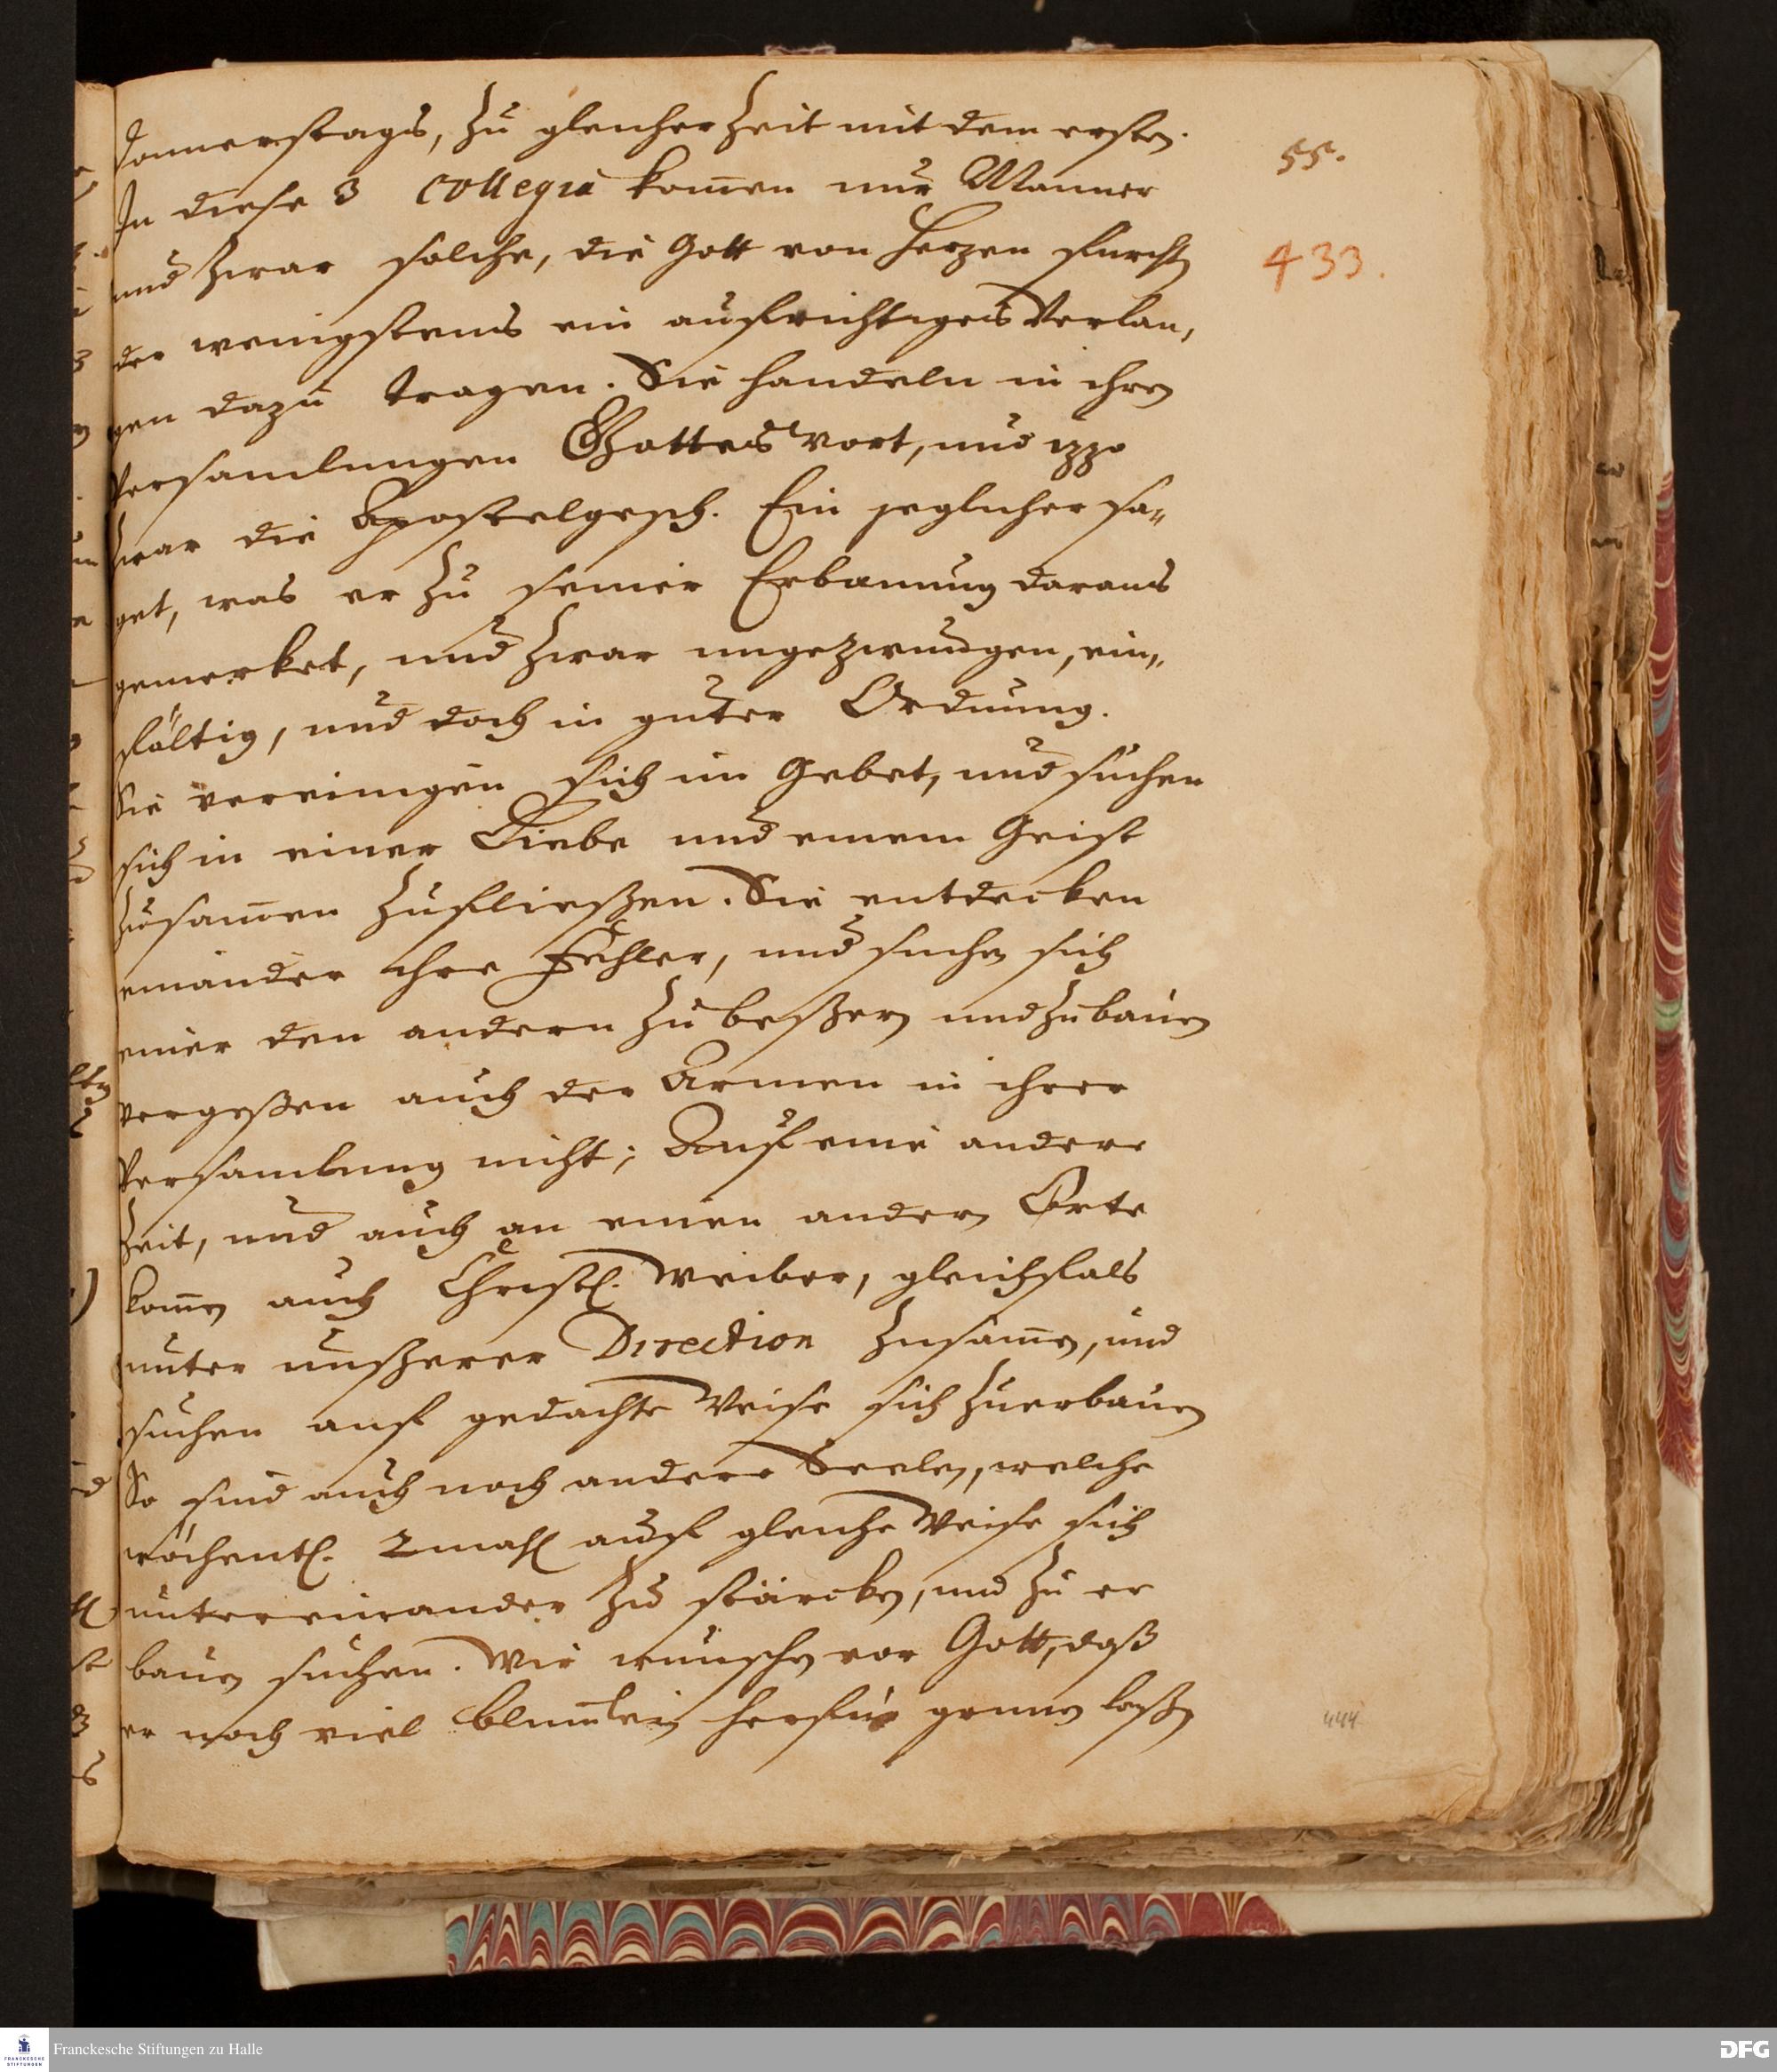 Donnerstags, zu gleicher Zeit mit dem ersten.
In diese 3 Collegia kom̅en nur Männer
und zwar solche, die Gott von Herzen fürcht
der wenigstens ein aufrichtiges Verlan,
gen dazu tragen. Sie handeln in ihren
Versamlungen Gottes Wort, und izzo
zwar die Apostelgesch. Ein jeglicher sa„
get, was er zu seiner Erbauung daraus
gemerket, und zwar ungezwungen, ein„
fältig, und doch in guter Ordnung.
Sie vereinigen sich im Gebet, und suchen
sich in einer Liebe und einem Geist
zusam̅en zufließen. Sie entdecken
einander ihre Fehler, und suchen sich
einer den andern zu beßern und zu bauen
vergeßen auch der Armen in ihrer
Versamlung nicht; Auf eine andere
Zeit, und auch an einen andern Orte
kom̅en auch Christl. Weiber, gleichfals
unter unßerer Direction zusam̅en, und
suchen auf gedachte Weise sich zuerbauen
So sind auch noch andere Seelen, welche
wöchentl. 2 mahl auf gleiche Weise sich
untereinander zu stärcken, und zu er
bauen suchen. Wir wünschen vor Gott, daß
er noch viel blümlein herfür laßen
55.
433.
444
Franckesche Stiftungen zu Halle
FRANCKESCHE STIFTUNGEN
DFG